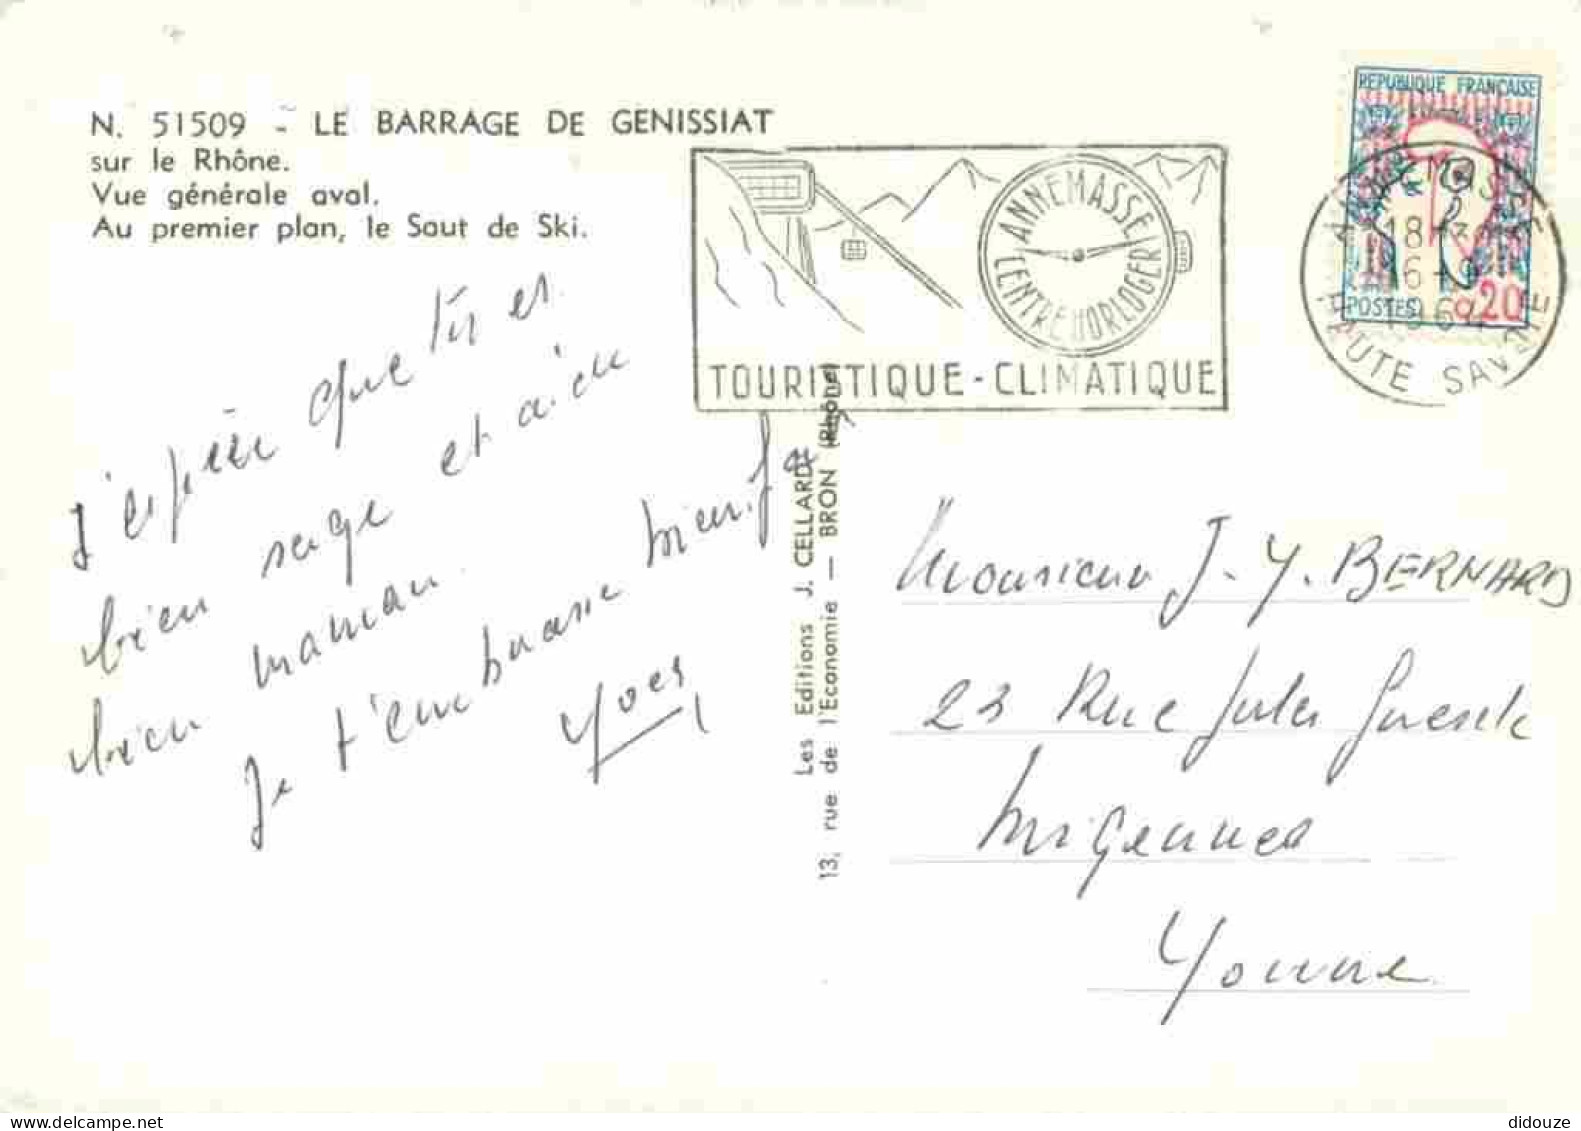 N. 51509 - LE BARRAGE DE GENISSIAT
sur le Rhône.
Vue générale aval.
Au premier plan, le Saut de Ski.
J'espère que tu es
bien sage et aide
bien maman.
Je t'embrasse bien fort
Yves
Les Editions J. CELLARD
13, rue de l'Economie — BRON (Rhône)
ANNEMASSE
CENTRE HORLOGER
TOURISTIQUE - CLIMATIQUE
REPUBLIQUE FRANÇAISE
POSTES 0,20
ANNEMASSE
18H
16-9
196
HAUTE SAVOIE
Monsieur J-Y. BERNARD
23 Rue Jules Guesde
Migennes
Yonne
didouze
delcampe.net